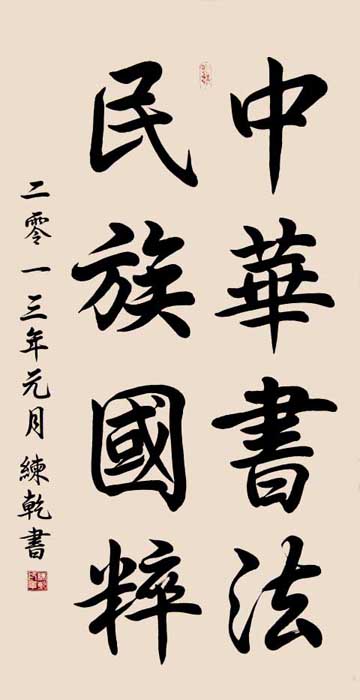 中華書法
民族國粹
二零一三年元月練乾書